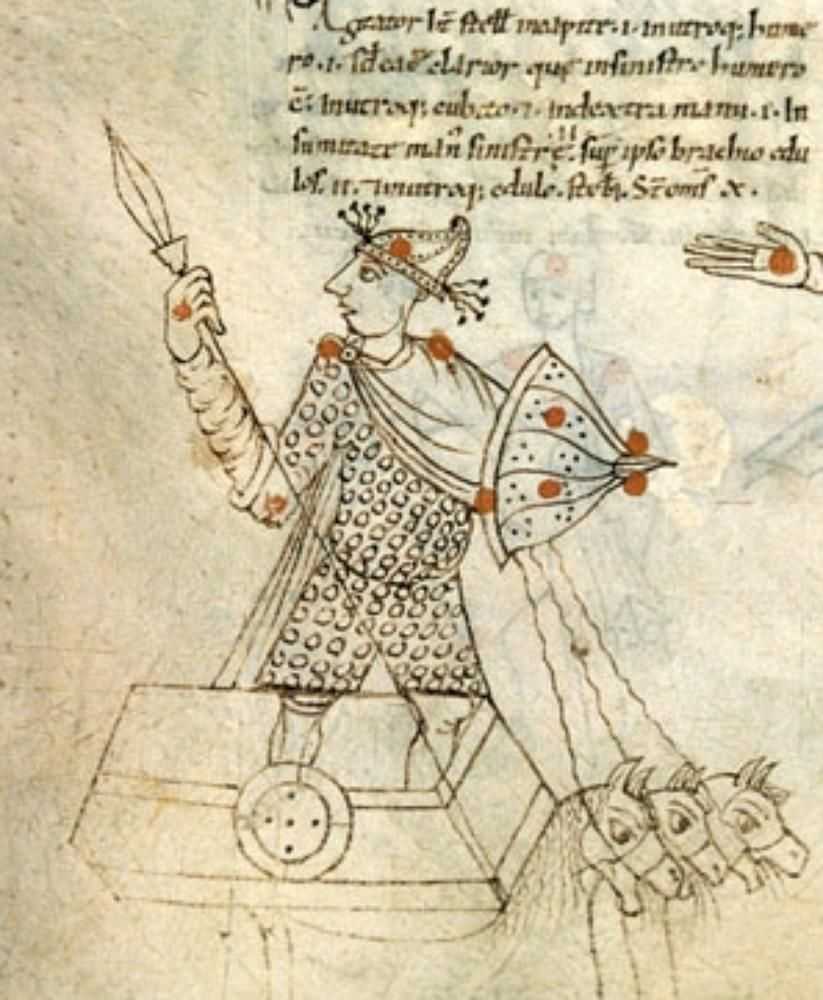 Agitator hẽ stell in capite .i. in utroq; hume
ro .i. sed ea clarior que in sinistro humero
ẽ. In utroq; cubito .i. In dextra manu .i. In
sumitate mañ sinistrę .ii. sup ipso brachio edu
los .ii. in utroq; edulo. stell. St̃ om̃s x.